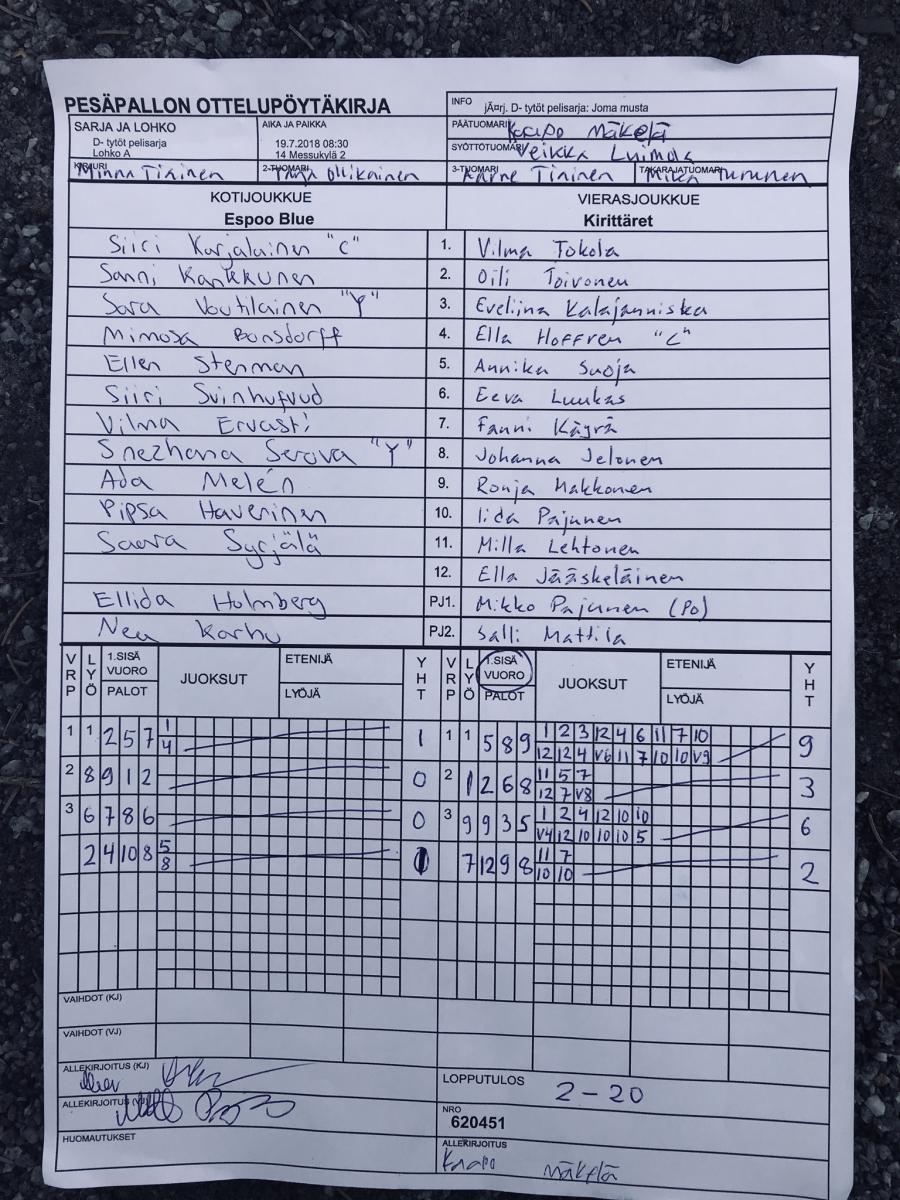 PESÄPALLON OTTELUPÖYTÄKIRJA
INFO jÃ¤rj. D- tytöt pelisarja: Joma musta
SARJA JA LOHKO
D- tytöt pelisarja
Lohko A
AIKA JA PAIKKA
19.7.2018 08:30
14 Messukylä 2
PÄÄTUOMARI Kaapo Mäkelä
SYÖTTÖTUOMARI Veikka Luimola
KIRJURI Minna Tiainen 2-TUOMARI Ollikainen 3-TUOMARI Aarne Tiainen TAKARAJATUOMARI Mika Turunen
KOTIJOUKKUE VIERASJOUKKUE
Espoo Blue Kirittäret
Siiri Karjalainen "C" 1. Vilma Tokola
Sanni Kankkunen 2. Oili Toivonen
Sara Voutilainen "Y" 3. Eveliina Kalajanniska
Mimosa Bonsdorff 4. Ella Hoffren "C"
Ellen Stenman 5. Annika Suoja
Siiri Svinhufvud 6. Eeva Luukas
Vilma Ervasti 7. Fanni Käyrä
Snezhana Serova "Y" 8. Johanna Jelonen
Ada Melén 9. Ronja Makkonen
Pipsa Haverinen 10. Iida Pajunen
Saara Syrjälä 11. Milla Lehtonen
12. Ella Jääskeläinen
Ellida Holmberg PJ1. Mikko Pajunen (PO)
Nea Karhu PJ2. Salli Mattila
VRP LYÖ 1.SISÄ VUORO PALOT JUOKSUT ETENIJÄ LYÖJÄ YHT VRP LYÖ 1.SISÄ VUORO PALOT JUOKSUT ETENIJÄ LYÖJÄ YHT
1 1 2 5 7 1 1 1 1 5 8 9 1 2 3 12 4 6 11 7 10 9
4 12 12 4 V6 11 7 10 10 V9
2 8 9 1 2 0 2 1 2 6 8 11 5 7 3
12 7 V8
3 6 7 8 6 0 3 9 9 3 5 1 2 4 12 10 10 6
V4 12 10 10 10 5
2 4 10 8 5 1 7 12 9 8 11 7 2
8 10 10
VAIHDOT (KJ)
VAIHDOT (VJ)
ALLEKIRJOITUS (KJ)
LOPPUTULOS 2-20
ALLEKIRJOITUS (VJ)
NRO
620451
HUOMAUTUKSET
ALLEKIRJOITUS
Kaapo Mäkelä